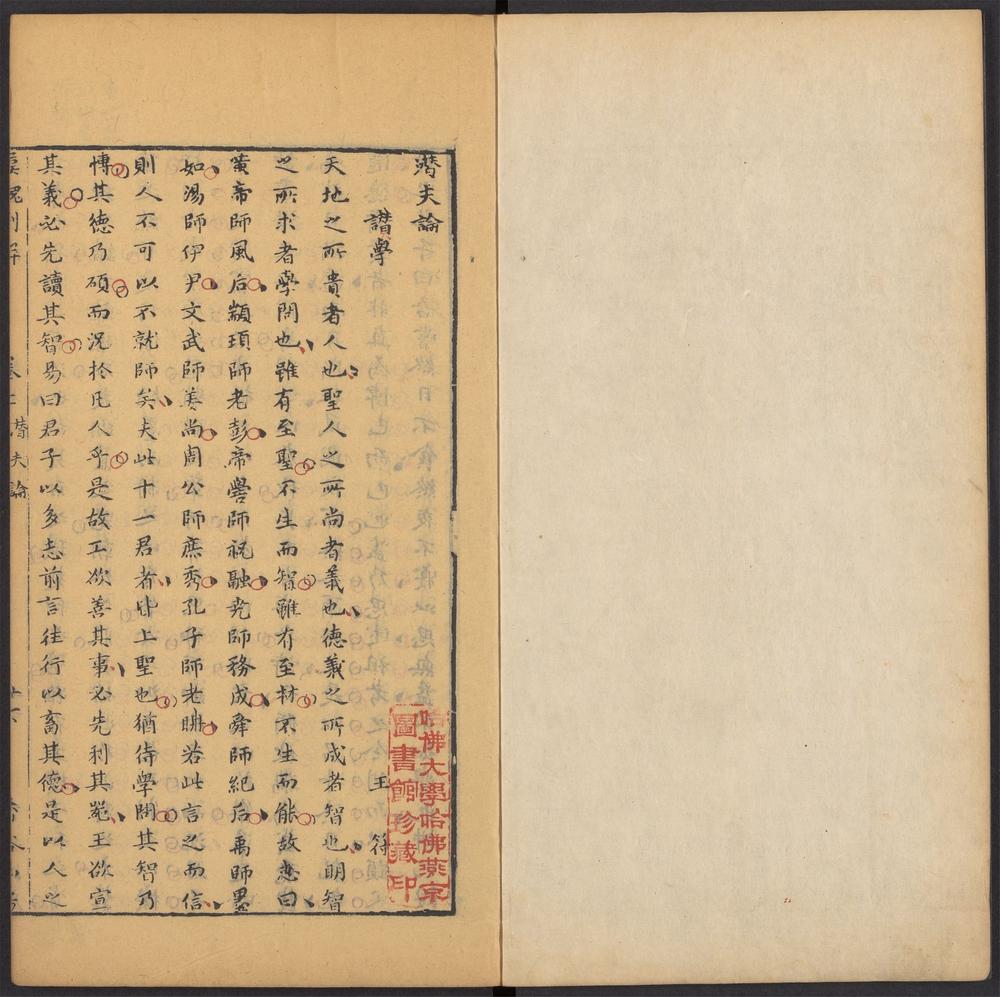 潛夫論
讃學
王符
天地之所貴者人也聖人之所尚者義也德義之所成者智也明智
之所求者學問也雖有至聖不生而智雖有至材不生而能故志曰
黃帝師風后顓頊師老彭帝嚳師祝融堯師務成舜師紀后禹師墨
如湯師伊尹文武師姜尚周公師庶秀孔子師老聃若此言之而信
則人不可以不就師矣夫此十一君者皆上聖也猶待學問其智乃
博其德乃碩而況於凡人乎是故工欲善其事必先利其器王欲宣
其義必先讀其智易曰君子以多志前言往行以畜其德是以人之
潛夫論
哈佛大學哈佛燕京
圖書館珍藏印